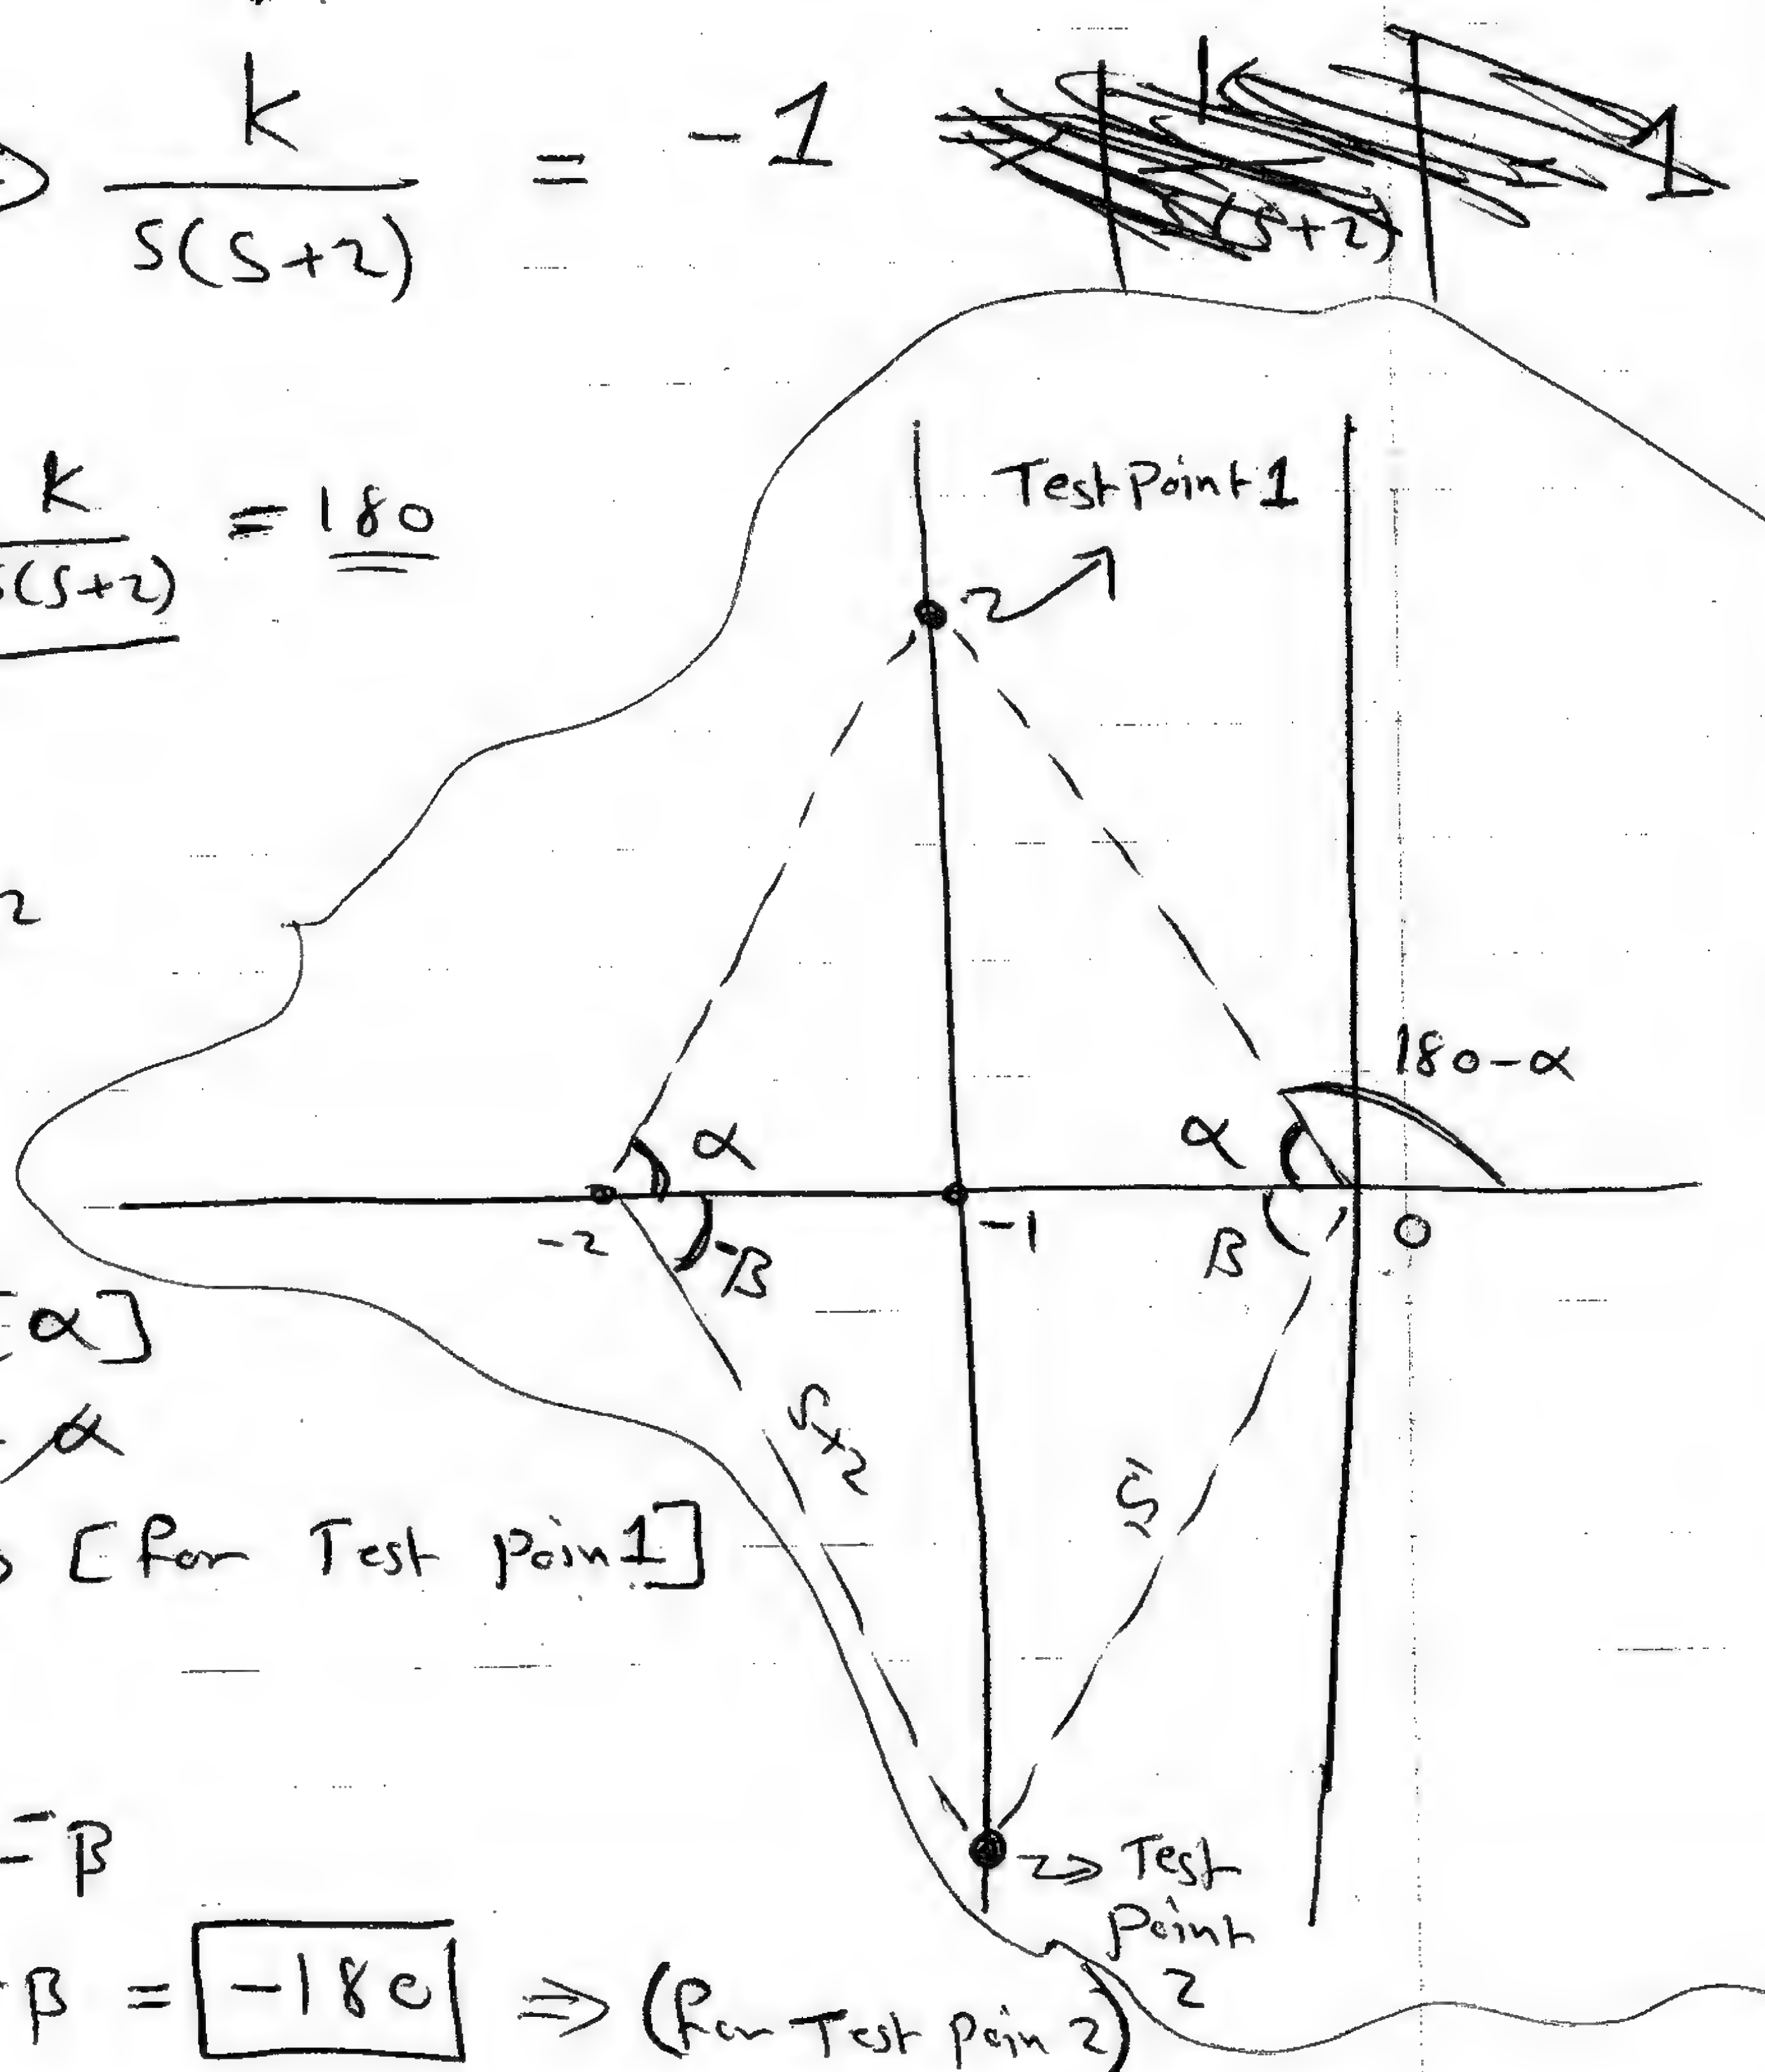 k/(s(s+2)) = -1
k/(s(s+2)) = 180
Test Point 1
2
180-α
α α
-2 -β -1 β 0
[α]
α
s+2 s
[for Test poin1]
= -β
Test
point
2
β = -180 ⇒ (for Test poin 2)